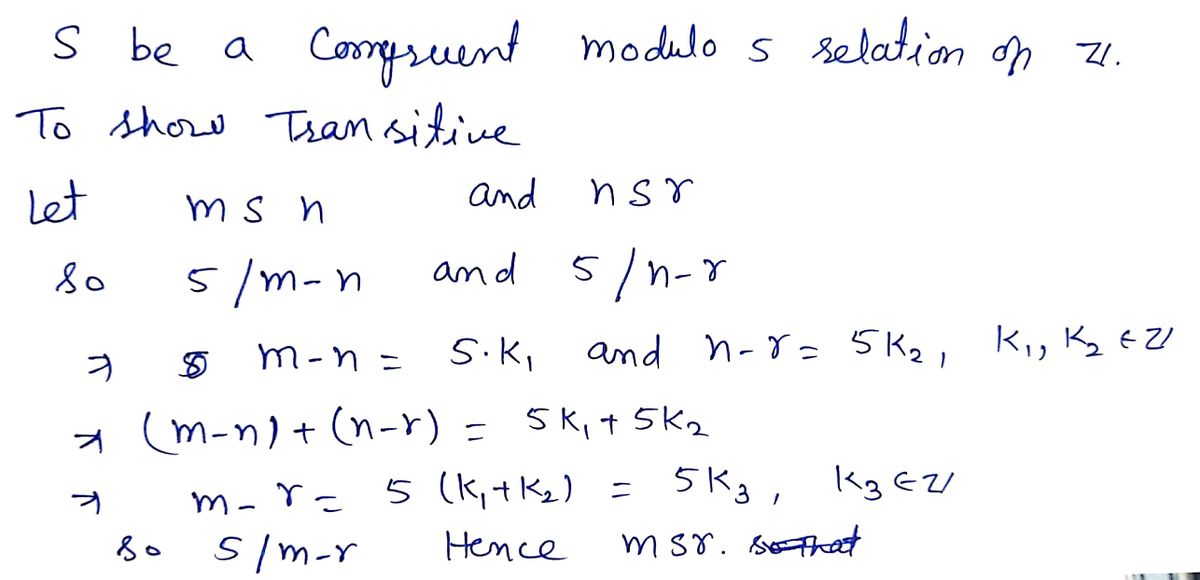 S be a Congruent modulo 5 relation on Z.
To show Transitive
Let m S n and n S r
So 5 / m - n and 5 / n - r
⇒ m - n = 5·K₁ and n - r = 5K₂, K₁, K₂ ∈ Z
⇒ (m-n) + (n-r) = 5K₁ + 5K₂
⇒ m - r = 5 (K₁+K₂) = 5K₃, K₃ ∈ Z
So 5 / m-r Hence m S r. so that